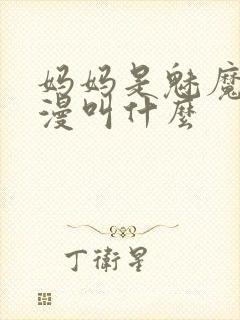 妈妈是魅魔
漫叫什麽
丁衛星